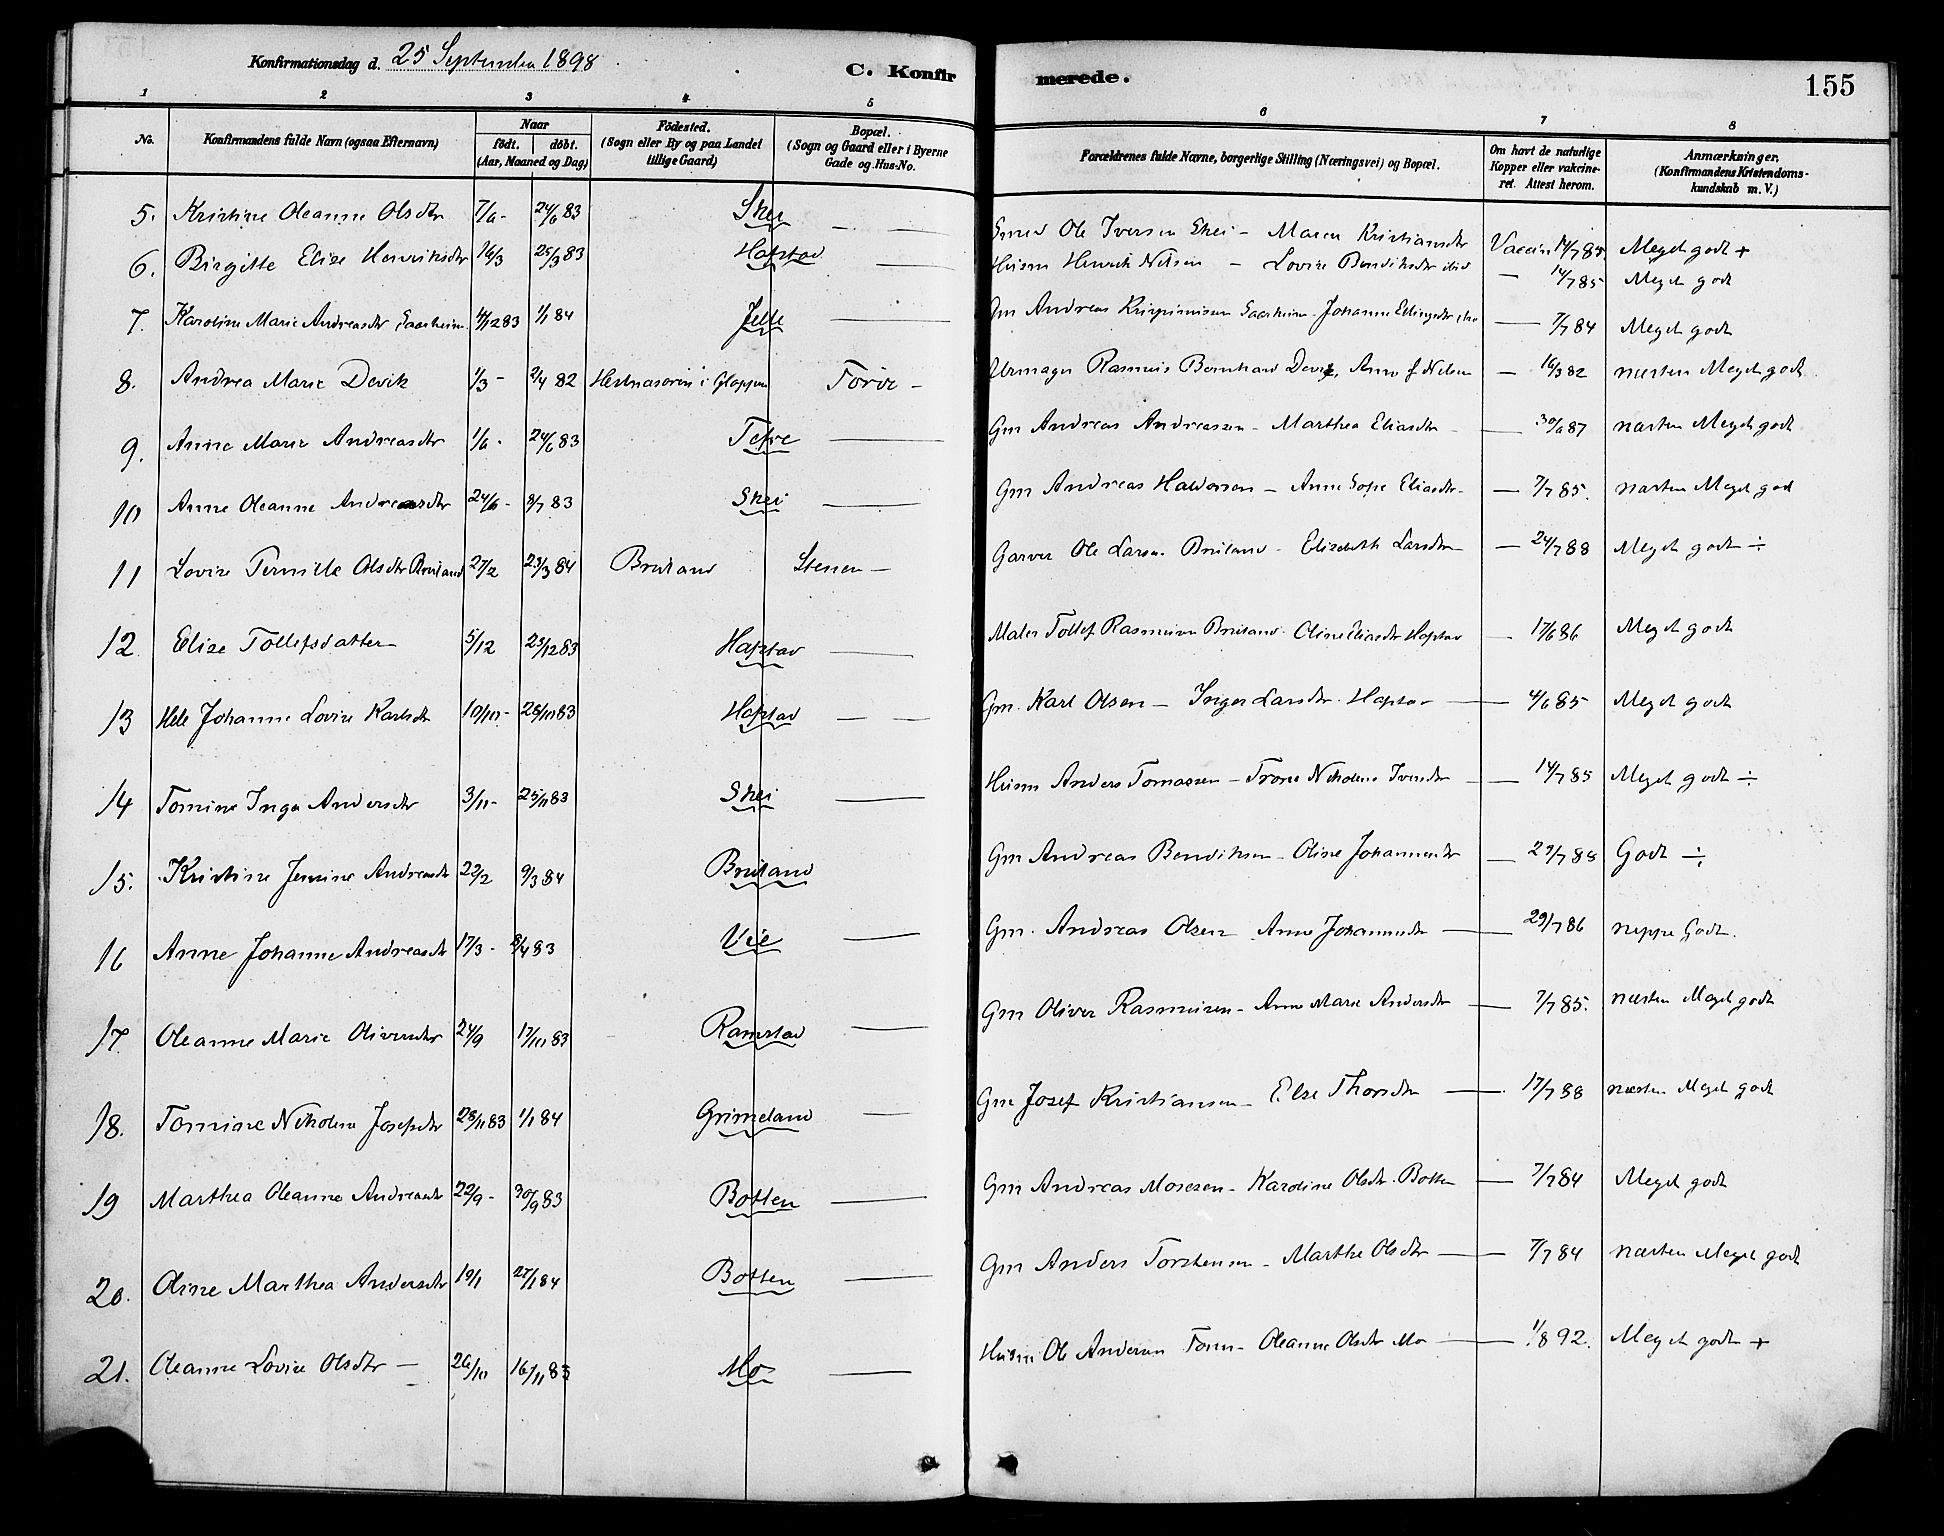 Konfirmationsdag d. 25 September 1898
C. Konfirmerede.
155
1 2 3 4 5 6 7 8
No. Konfirmandens fulde Navn (ogsaa Efternavn) Naar født. døbt. (Aar, Maaned og Dag) Födested. (Sogn eller By og paa Landet tillige Gaard) Bopæl. (Sogn og Gaard eller i Byerne Gade og Hus-No. Forældrenes fulde Navne, borgerlige Stilling (Næringsvei) og Bopæl. Om havt de naturlige Kopper eller vakcineret. Attest herom. Anmærkninger. (Konfirmandens Kristendomskundskab m. V.)
5. Kristine Oleanne Olsdtr 7/6 - 24/6 83 Skei — — Smed Ole Iversen Skei - Maren Kristiansdtr Vaccin 14/7 85. Meget godt +
6. Birgitte Elise Henriksdtr 16/3 25/3 83 Hafstad — Husm Henrik Nilsen - Lovise Bendiksdtr ibid — 14/7 85 Meget godt
7. Karoline Marie Andreasdtr Saarheim 4/12 83 1/1 84 Jelle — Gm Andreas Saarheim - Johanne — 7/7 84 Meget godt
8. Andrea Marie Devik 1/3 - 2/4 82 i Gloppen Förde - Urmager Rasmus Bernhard Devik, Anne f Nilsen — 16/3 82 næsten Meget godt
9. Anne Marie Andreasdtr 1/6 - 24/6 83 Tefre — Gm Andreas Andreassen - Marthea Eliasdtr — 30/6 87 næsten Meget godt
10 Anne Oleanne Andreasdtr 24/6 - 8/7 83 Skei — Gm Andreas Haldorsen - Anne Sofie Eliasdtr - — 7/7 85. næsten Meget godt
11 Lovise Pernille Olsdtr Bruland 27/2 23/3 84 Bruland Stenen — Garver Ole Larsen Bruland - Elisabeth Larsdtr — 24/7 88 Meget godt ÷
12 Elise Tollefsdatter 5/12 23/12 83 Hafstad — Maler Tollef Rasmussen Bruland - Oline Eliasdtr Hafstad — 17/6 86 Meget godt
13 Johanne Lovise Karlsdtr 10/10 - 28/10 83 Hafstad — — Gm. Karl Olsen - Inger Larsdtr. Hafstad — 4/6 85 Meget godt
14 Tomine Inga Andersdtr 3/11 - 25/11 83 Skei — Husm Anders Tomassen - Trone Nikoline Iversdtr — 14/7 85 Meget godt ÷
15. Kristine Jensine Andreasdtr 22/2 9/3 84 Bruland Gm Andreas Bendiksen - Oline Johannesdtr — 29/7 88 Godt ÷
16 Anne Johanne Andreasdtr 17/3 - 8/4 83 Vie — Gm. Andreas Olsen Anne Johannesdtr — 29/7 86 neppe Godt.
17. Oleanne Marie Oliversdtr 24/9 17/10 83 Ramstad — Gm Oliver Rasmussen - Anne Marie Andersdtr — 7/7 85. næsten Meget godt
18. Tomine Nikoline Josefsdtr 28/11 83 1/1 84 Grimeland — Gm Josef Kristiansen - Else Thorsdtr — 17/7 88 næsten Meget godt
19 Marthea Oleanne Andreasdtr 22/9 - 30/9 83 Botten — Gm Andreas Mosesen - Karoline Olsdtr. Botten — 7/7 84 Meget godt
20. Oline Marthea Andersdtr 19/1 27/1 84 Botten — Gm Anders Torstensen - Marthe Olsdtr — 7/7 84 næsten Meget godt
21. Oleanne Lovise Olsdtr — 26/10 16/11 83 Mo — Husm Ole Andersen - Oleanne Olsdtr Mo — 1/8 92. Meget godt +